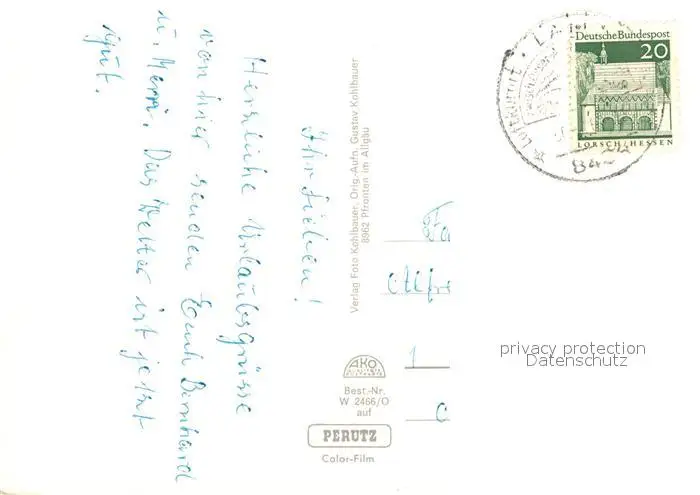 Ihr Lieben!
Herzliche Urlaubsgrüsse
von hier senden Euch Bernhard
u. Das Wetter ist jetzt
gut.
Verlag Foto Kohlbauer, Orig.-Aufn. Gustav Kohlbauer
8962 Pfronten im Allgäu
AKO
Best.-Nr.
W 2466/O
auf
PERUTZ
Color-Film
Deutsche Bundespost
20
LORSCH/HESSEN
Fa
Alfre
1
privacy protection
Datenschutz